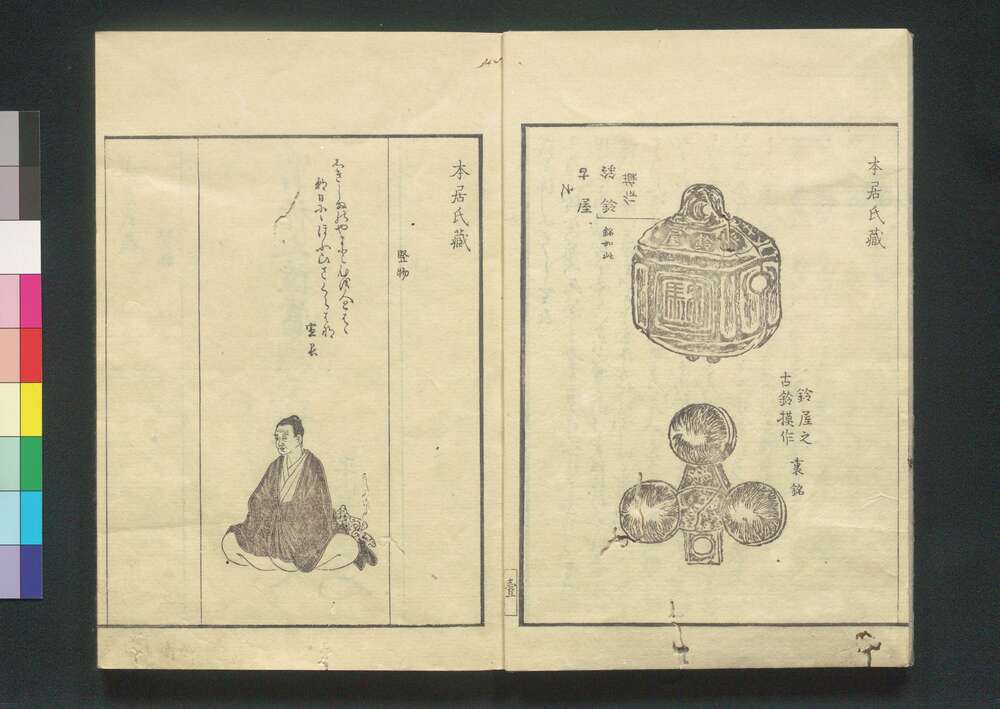 本居氏藏
銘如此
鈴屋之
古鈴摸作
裏銘
壹
本居氏藏
竪物
しきしまのやまとこゝろを人とはゝ
朝日ににほふ山さくらはな
宣長